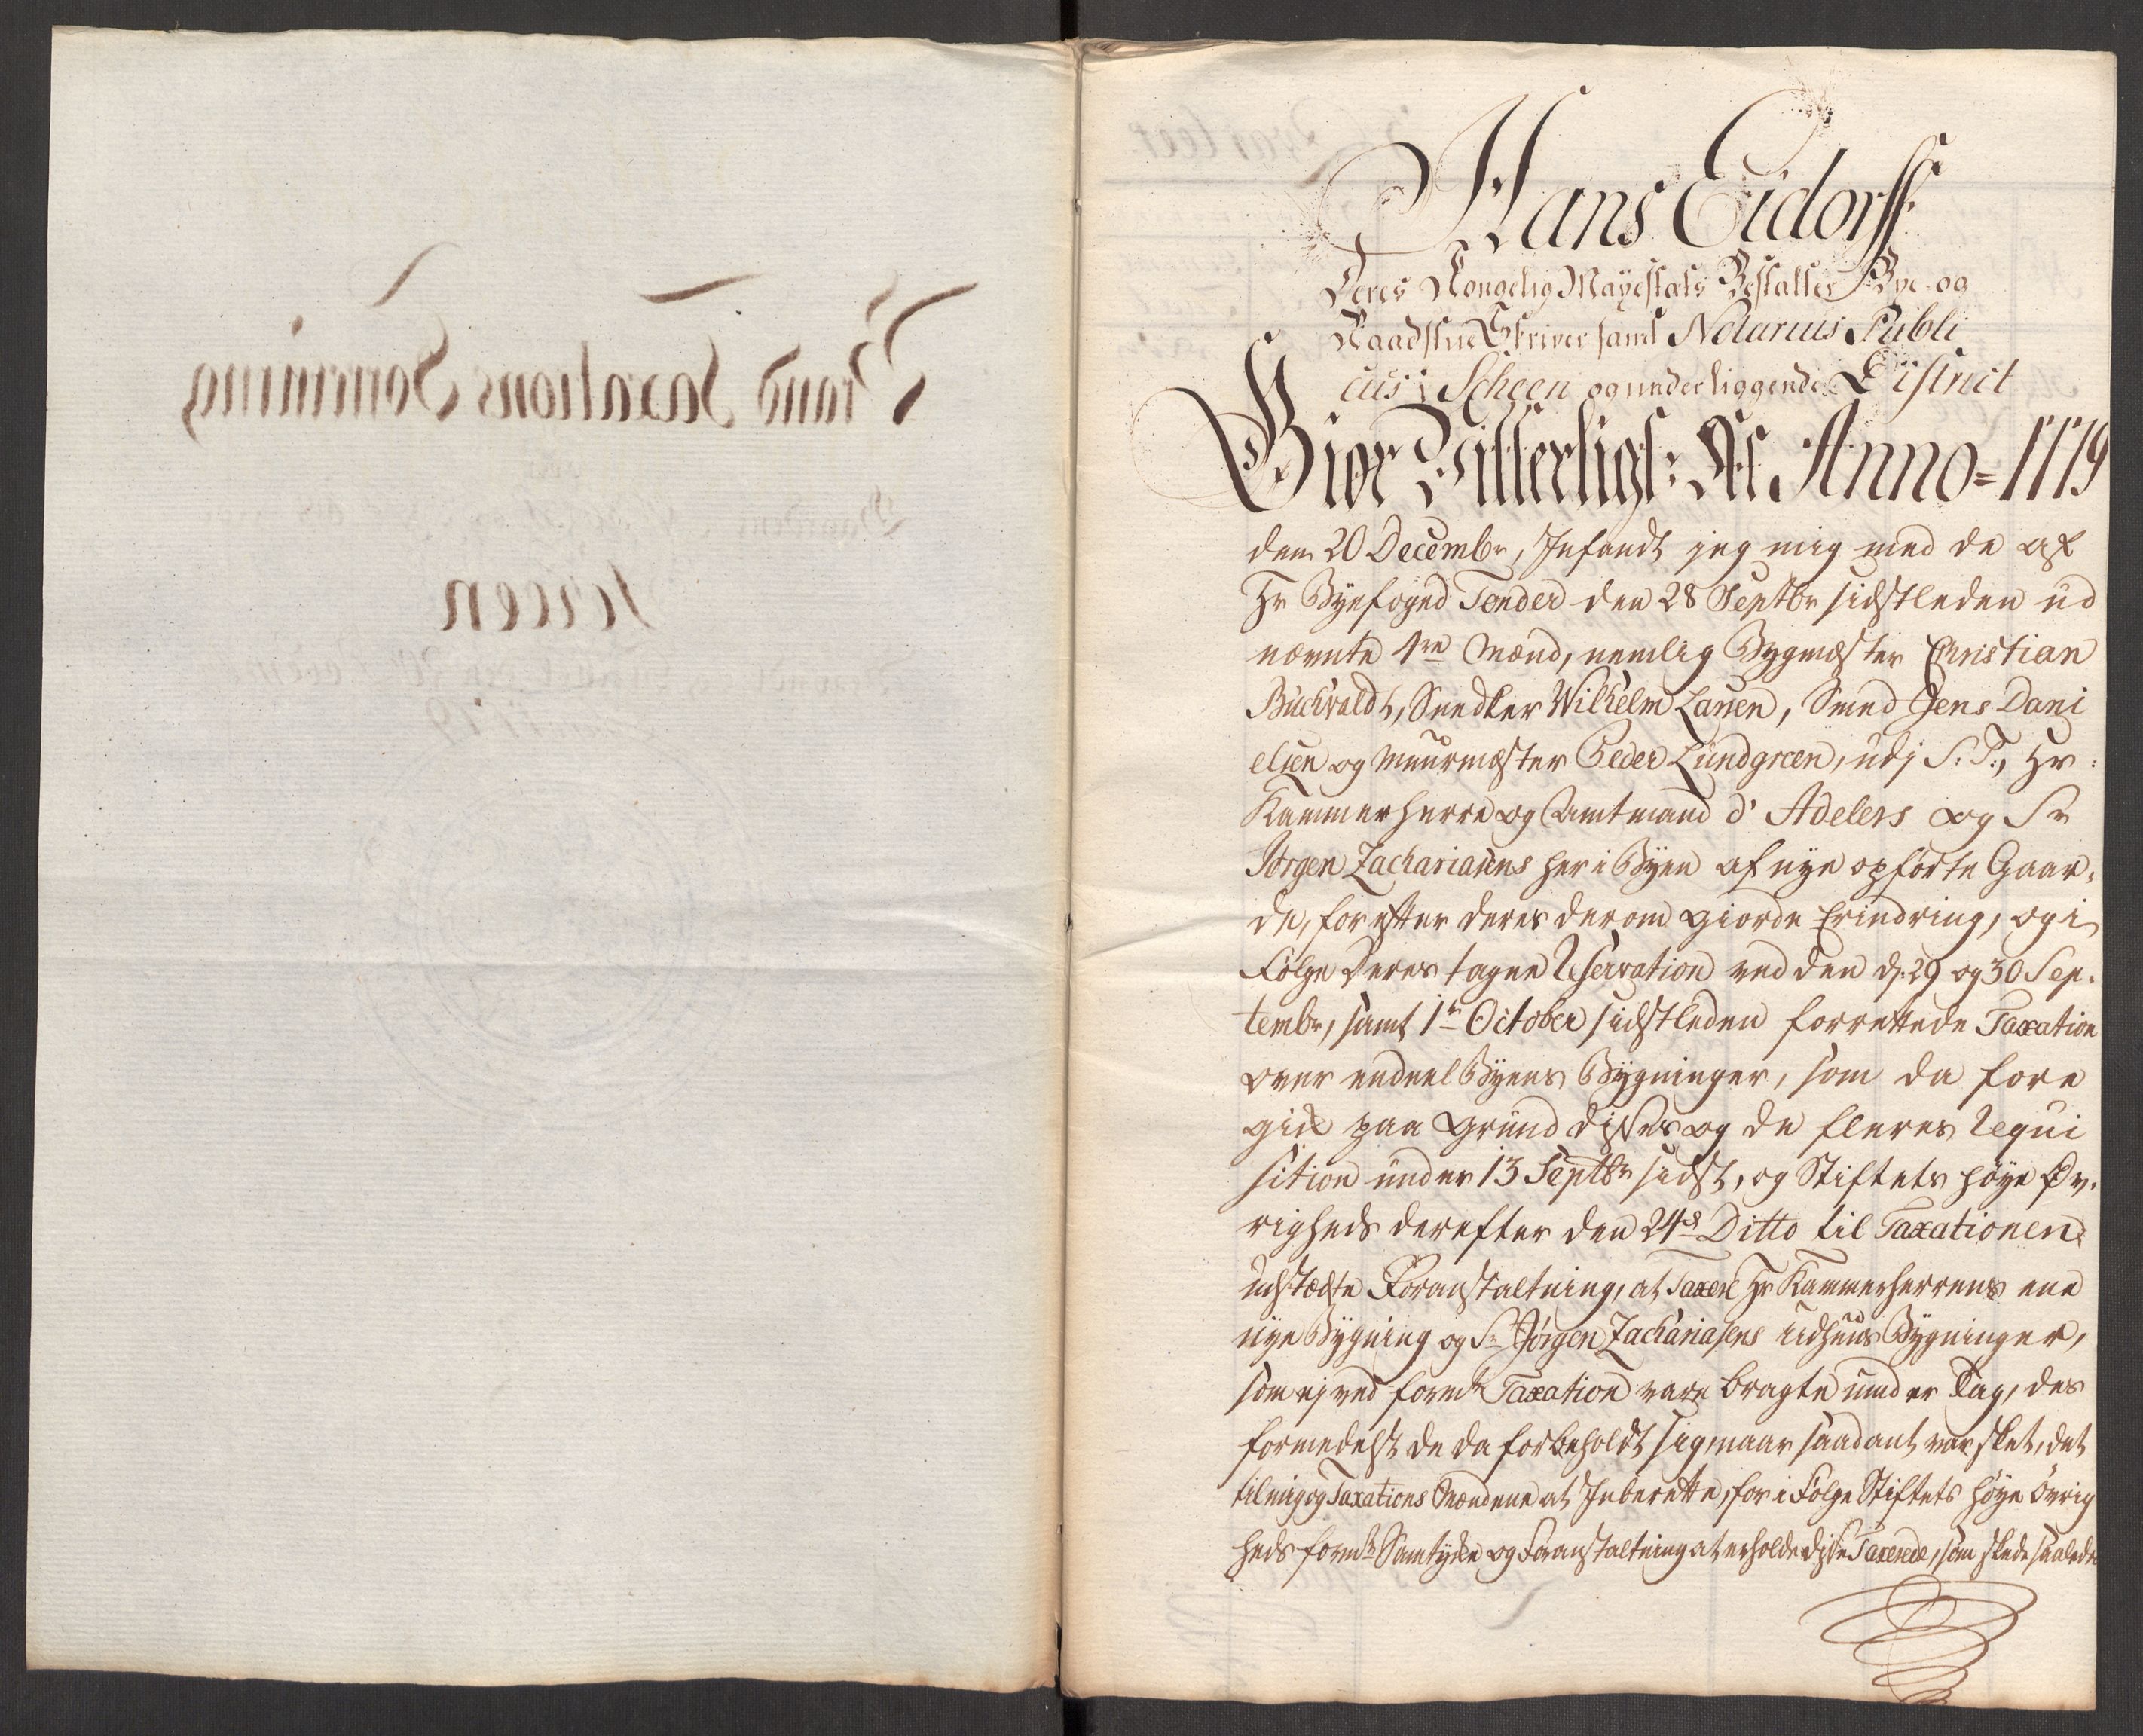 Hans Eidorff
Deres Kongelig Mayestæts Bestalter Bye- og
Raadstue Skriver samt Notarius Publi
cus i Scheen og underliggende District
Giør Vitterligt: At Anno = 1779
den 20 Decembr, Infandt jeg mig med de af
Hr Byefoged Tønder den 28 Septbr sidstleden ud
nævnte 4re Mænd, nemlig Bygmæster Christian
Buchvaldt, Snedker Wilhelm Lassen, Smed Jens Dani
elsen og Muurmæster Peder Lundgreen, udj S. T., Hr:
Kammerherre og Amtmand d' Adelers og Sr
Jørgen Zachariasens her i Byen af nye opførte Gaar,
de, for efter deres derom giorde Erindring, og i
Følge Deres tagne Reservation ved den d: 29 og 30 Sep,
tembr, samt 1te October sidstleden forrettede Taxation
over endeel Byens Bygninger, som da fore
gik paa Grund disses og de fleres Requi
sition under 13 Septbr sidst, og Stiftets høye Øv,
righeds derefter den 24de Ditto til Taxationen
udstædte Foranstaltning, at Taxere Hr Kammerherrens ene
nye Bygning og Sr Jørgen Zachariasens Udhuus Bygninger,
som ej ved formte Taxation vare bragte under Tag, des
formedelst de da forbeholdt sig, naar saadant var skeet, det
til mig og Taxations Mændene at Inberette, for i Følge Stiftets høye Øvrig
heds formte Samtykke og Foranstaltning at erholde disse Taxerede, som skede saalede
Brand Taxations Forretning
Scheen
1779